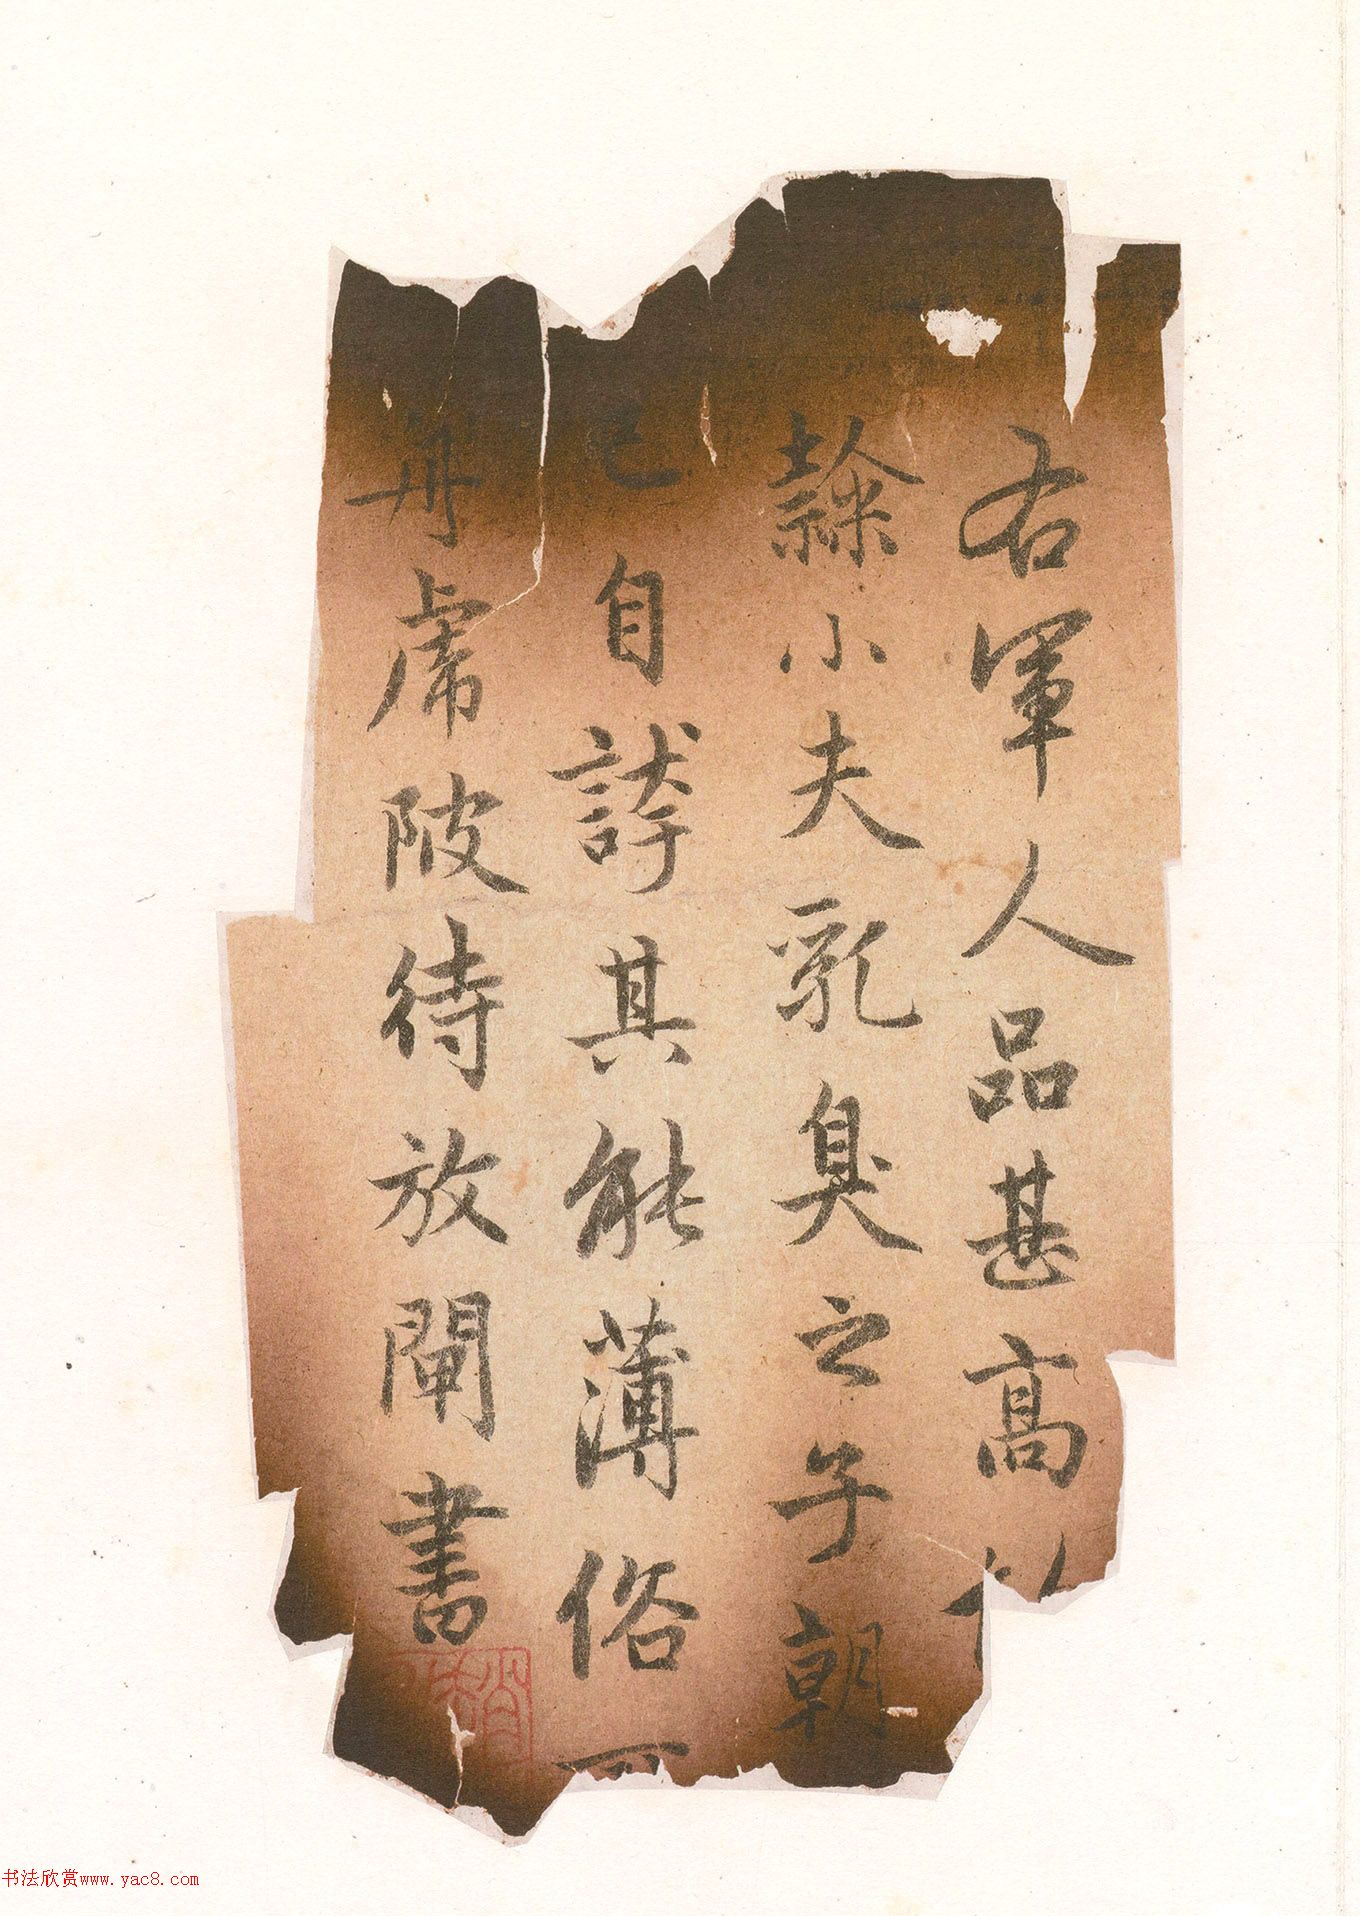 右軍人品甚高故
隸小夫乳臭之子朝
已自誇其能薄俗可
舟虎陂待放閘書
书法欣赏www.yac8.com